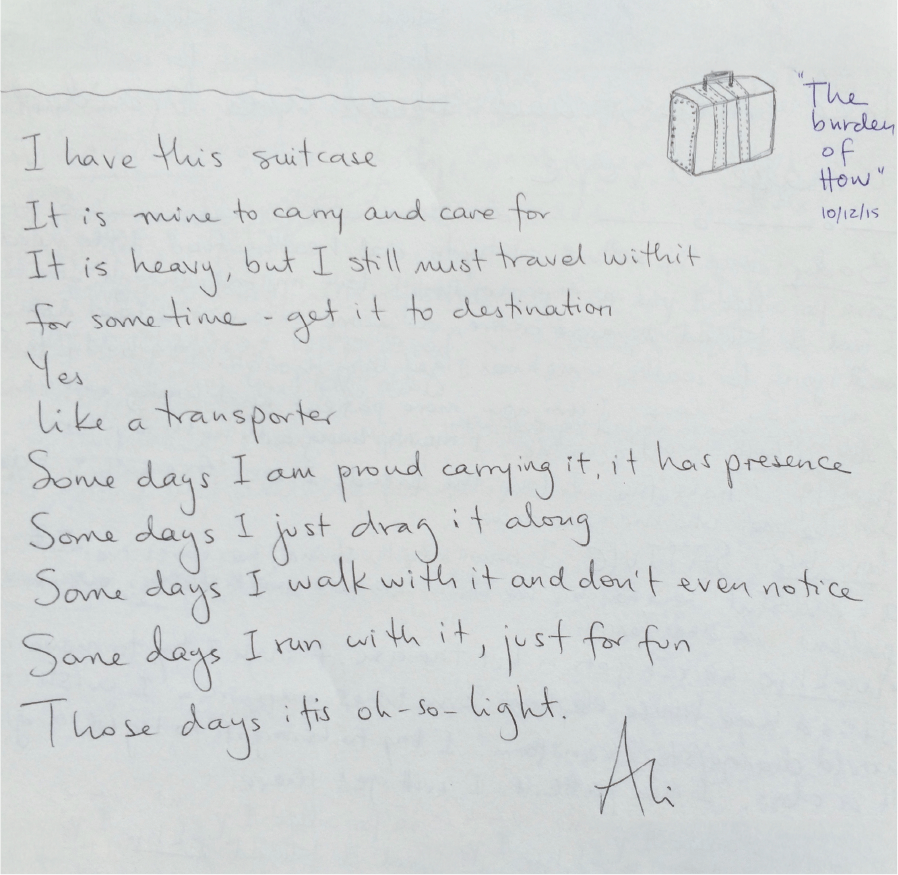 "The
burden
of
How"
10/12/15
I have this suitcase
It is mine to carry and care for
It is heavy, but I still must travel with it
for some time - get it to destination
Yes
like a transporter
Some days I am proud carrying it, it has presence
Some days I just drag it along
Some days I walk with it and don't even notice
Some days I run with it, just for fun
Those days it is oh-so-light.
Ali